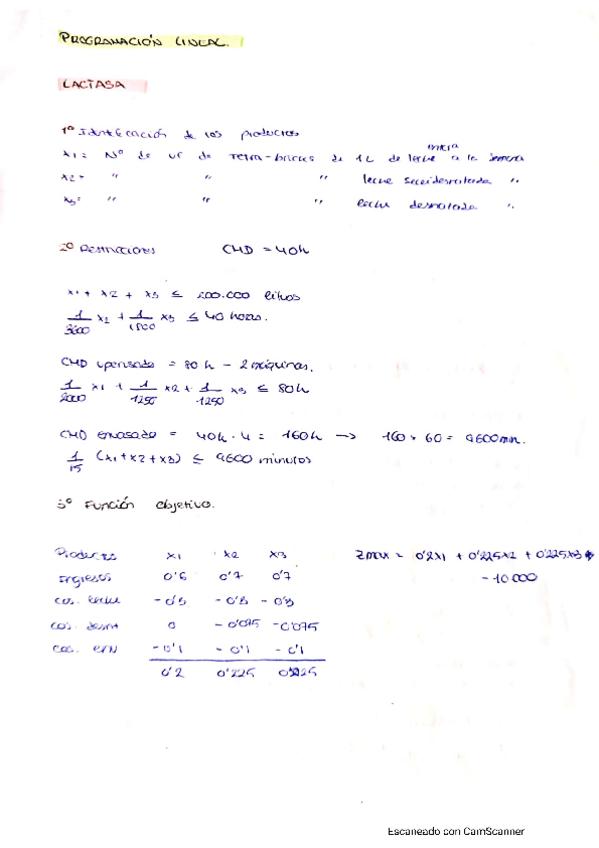 PROGRAMACIÓN LINEAL.
LACTASA
1º Identificación de los productos
x1 = Nº de ud de Tetra-bricks de 1L de leche entera a la semana
x2 = " " " leche semidesnatada "
x3 = " " " leche desnatada "
2º Restricciones CMD = 40h
x1 + x2 + x3 ≤ 200.000 litros
1/3600 x2 + 1/1800 x3 ≤ 40 horas.
CMD = 80h - 2 máquinas.
1/2000 x1 + 1/1250 x2 + 1/1250 x3 ≤ 80h
CMD envasado = 40h · 4 = 160h → 160 × 60 = 9600 min.
1/15 (x1 + x2 + x3) ≤ 9600 minutos
3º Función objetivo.
Productos x1 x2 x3 Zmax = 0'2x1 + 0'225x2 + 0'225x3
Ingresos 0'6 0'7 0'7 - 10 000
cos. leche - 0'3 - 0'3 - 0'3
cos. desnt 0 - 0'075 - 0'075
cos. env - 0'1 - 0'1 - 0'1
0'2 0'225 0'225
Escaneado con CamScanner